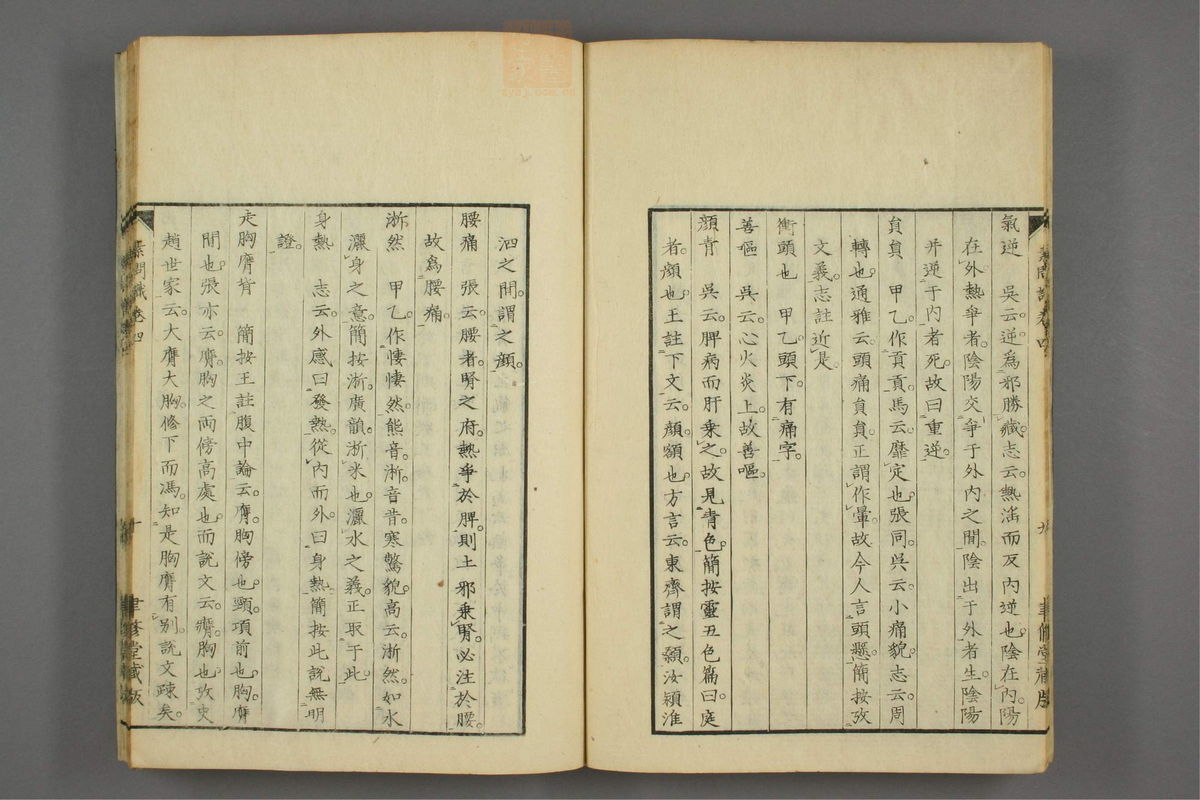 氣逆　吳云。逆。爲邪勝臧。志云。熱淫而反內逆也。陰在內。陽
在外。熱爭者。陰陽交爭于外內之間。陰出于外者生。陰陽
并逆于內者死。故曰重逆。
員員　甲乙。作貢貢。馬云。靡定也。張同。吳云。小痛貌。志云。周
轉也。通雅云。頭痛員員。正謂作暈。故今人言頭懸。簡按攷
文義。志註近是。
衝頭也　甲乙。頭下。有痛字。
善嘔　吳云。心火炎上。故善嘔。
顏青　吳云。脾病而肝乘之。故見青色。簡按靈五色篇曰。庭
者。顏也。王註下文云。顏。額也。方言云。東齊謂之顙。汝穎淮
泗之間。謂之顏。
腰痛　張云。腰者腎之府。熱爭於脾。則土邪乘腎。必注於腰。
故爲腰痛。
淅然　甲乙作悽悽然。熊音。淅。音昔。寒驚貌。高云。淅然。如水
灑身之意。簡按淅。廣韻。淅。米也。灑水之義。正取于此。
身熱　志云。外感曰發熱。從內而外。曰身熱。簡按此說無明
證。
走胸膺背　簡按王註腹中論云。膺。胸傍也。頸。項前也。胸。膺
間也。張亦云。膺。胸之兩傍高處也。而說文云。膺。胸也。攷史
趙世家云。大膺大胸。修下而馮。知是胸膺有別。說文疎矣。
素問識卷四
十
聿修堂藏版